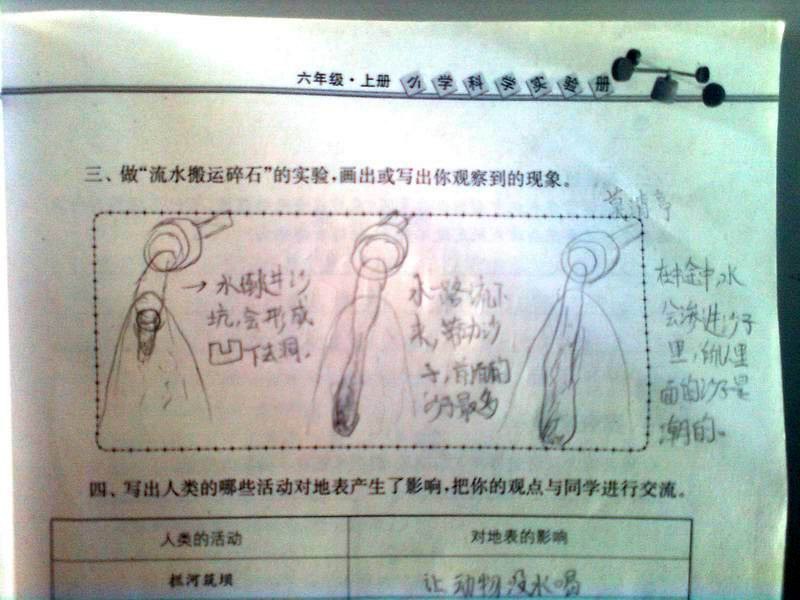 六年级·上册 小学科学实验册
三、做“流水搬运碎石”的实验,画出或写出你观察到的现象。
→ 水倒进沙
坑,会形成
凹下去洞.
水一路流下
来,带动沙
子,前面的
沙子最多
在中途中,水
会渗进沙子
里,所以里
面的沙子是
潮的。
四、写出人类的哪些活动对地表产生了影响,把你的观点与同学进行交流。
人类的活动 对地表的影响
拦河筑坝 让动物没水喝